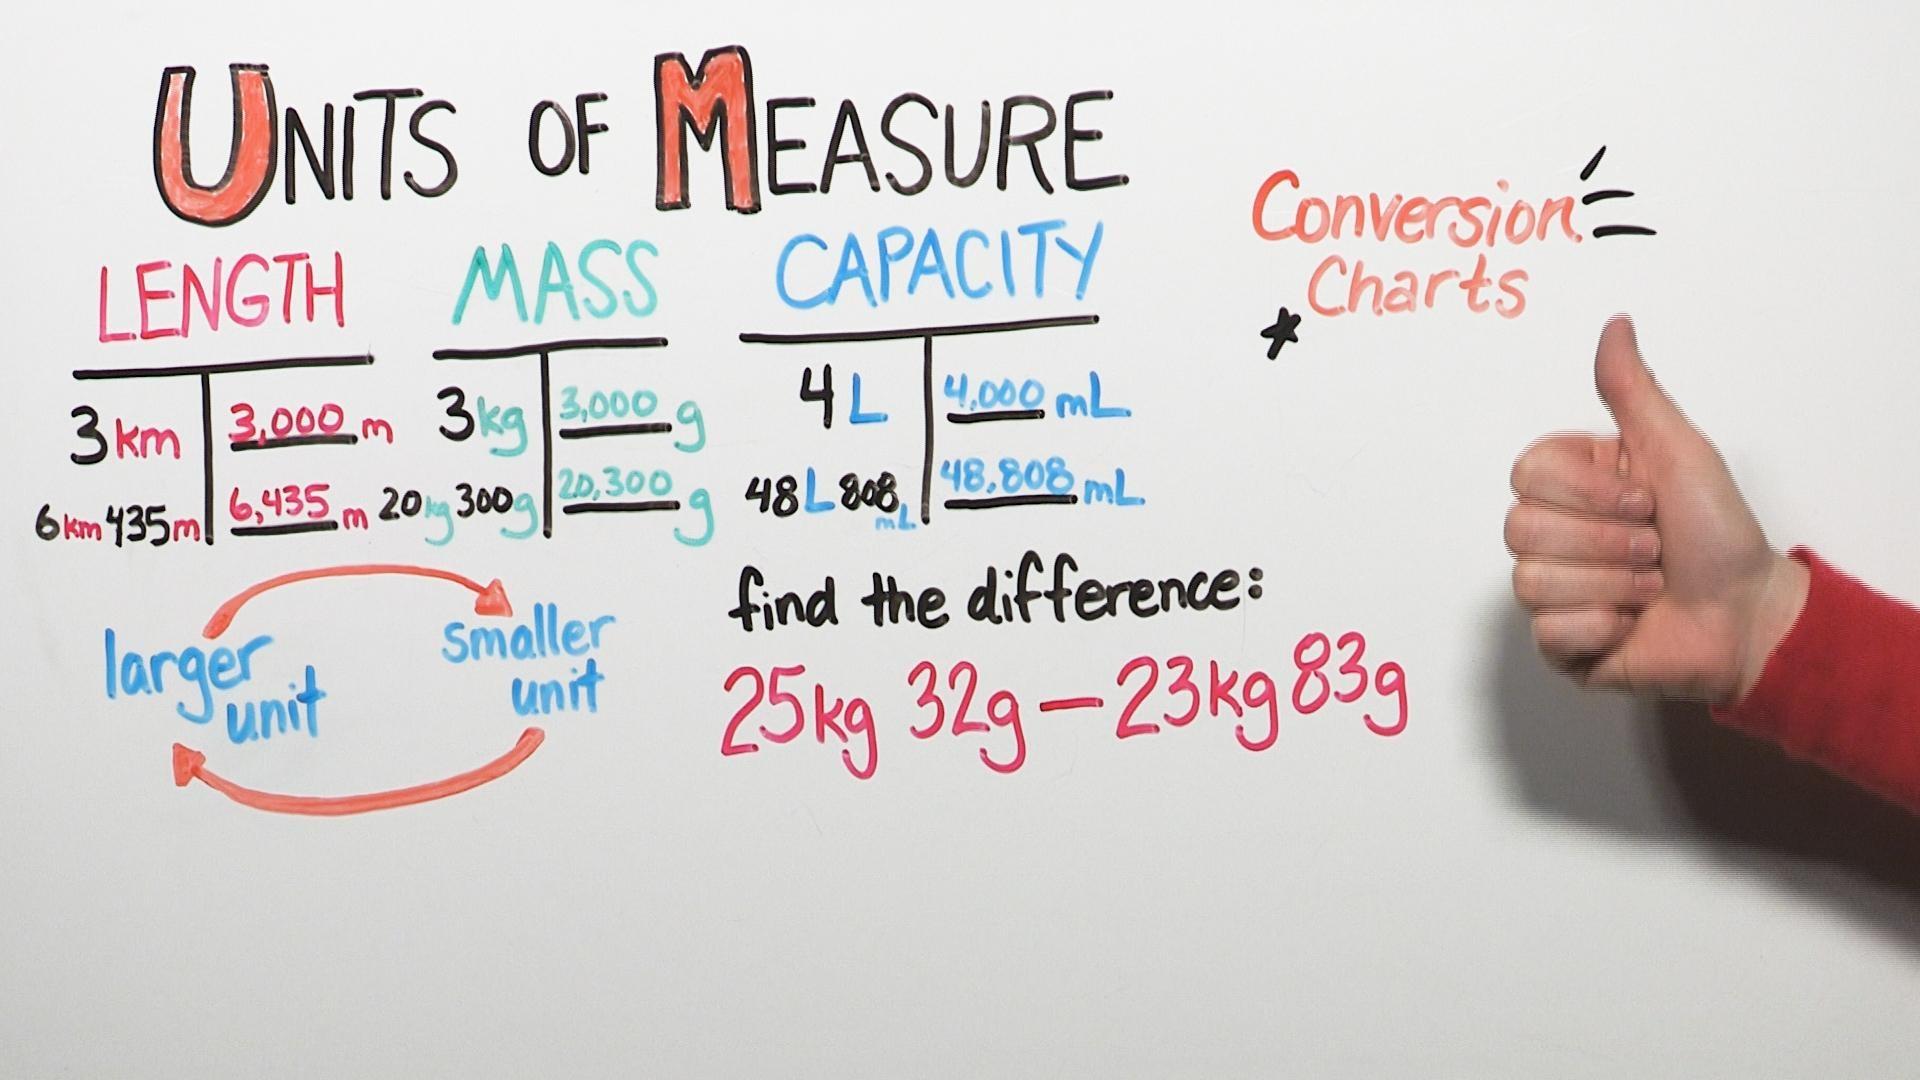 UNITS OF MEASURE
Conversion
Charts
*
LENGTH
3km 3,000 m
6km 435m 6,435 m
MASS
3kg 3,000 g
20kg 300g 20,300 g
CAPACITY
4 L 4,000 mL
48L 808mL 48,808 mL
larger
unit
smaller
unit
find the difference:
25kg 32g — 23kg 83g